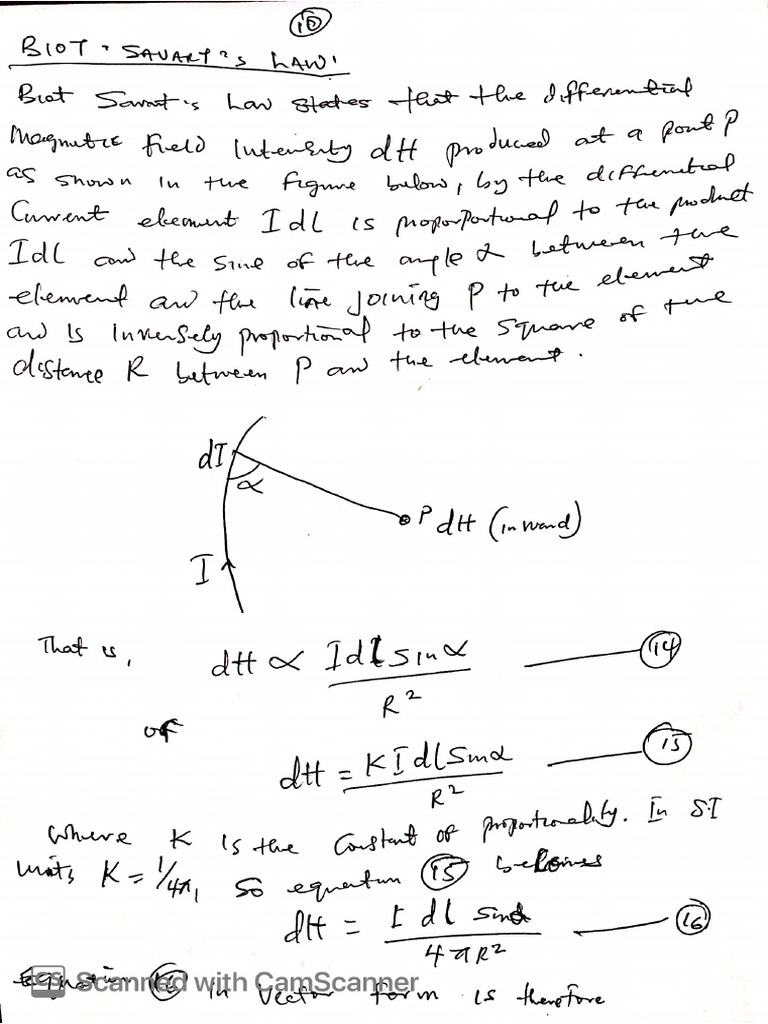 10
BIOT - SAVART'S LAW.
Biot Savart's Law states that the differential
Magnetic field Intensity dH produced at a point P
as shown in the figure below, by the differential
Current element Idl is proportional to the product
Idl and the sine of the angle α between the
element and the line joining P to the element
and is Inversely proportional to the square of the
distance R between P and the element.
dI
α
P dH (inward)
I
That is, dH ∝ Idl sinα / R² (14)
or
dH = KIdl sinα / R² (15)
where K is the constant of proportionality. In SI
units K = 1/4π, so equation (15) becomes
dH = I dl sinα / 4πR² (16)
Equation (16) in vector form is therefore
CS Scanned with CamScanner